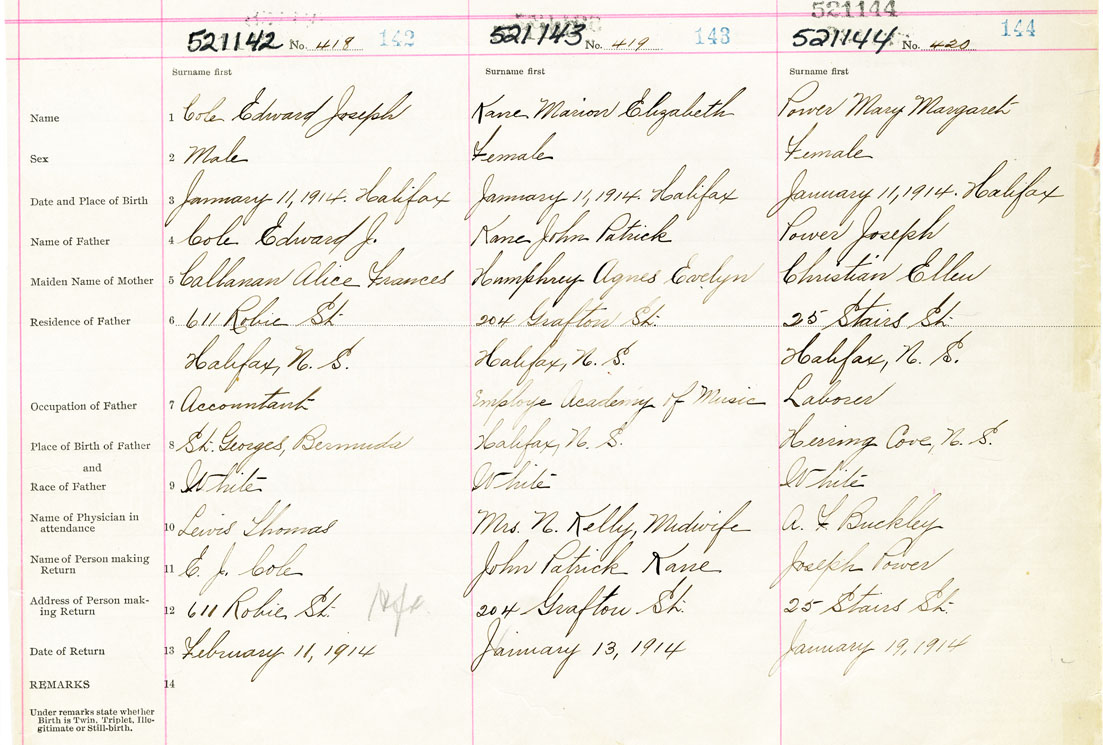 521144
521142 No. 418 142 521143 No. 419 143 521144 No. 420 144
Surname first Surname first Surname first
Name 1 Cole Edward Joseph Kane Marion Elizabeth Power Mary Margaret
Sex 2 Male Female Female
Date and Place of Birth 3 January 11, 1914. Halifax January 11, 1914. Halifax January 11, 1914. Halifax
Name of Father 4 Cole Edward J. Kane John Patrick Power Joseph
Maiden Name of Mother 5 Callanan Alice Frances Humphrey Agnes Evelyn Christian Ellen
Residence of Father 6 611 Robie St. 204 Grafton St. 25 Stairs St.
Halifax, N. S. Halifax, N. S. Halifax, N. S.
Occupation of Father 7 Accountant Employe Academy of Music Laborer
Place of Birth of Father 8 St. Georges, Bermuda Halifax, N. S. Herring Cove, N. S.
and
Race of Father 9 White White White
Name of Physician in
attendance 10 Lewis Thomas Mrs. N. Kelly, Midwife A. F Buckley
Name of Person making
Return 11 E. J. Cole John Patrick Kane Joseph Power
Address of Person mak-
ing Return 12 611 Robie St. Hfx. 204 Grafton St. 25 Stairs St.
Date of Return 13 February 11, 1914 January 13, 1914 January 19, 1914
REMARKS 14
Under remarks state whether
Birth is Twin, Triplet, Ille-
gitimate or Still-birth.